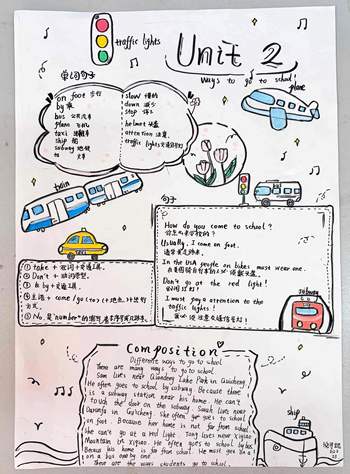 traffic lights
Unit 2
Ways to go to school
plane
单词句子
on foot 步行
by 乘
bus 公共汽车
plane 飞机
taxi 出租车
ship 船
subway 地铁
to 去
slow 慢的
down 减少
stop 停下
helmet 头盔
attention 注意
traffic lights 交通信号灯
train
句子
How do you come to school?
你怎么来学校的?
Usually, I come on foot.
通常我走路来。
In the USA people on bikes must wear one.
在美国骑自行车的人必须戴头盔。
Don't go at the red light!
别闯红灯!
I must pay attention to the
traffic lights!
我必须注意交通信号灯!
① take + 冠词 + 交通工具。
② Don't + 动词原型。
③ by + 交通工具。
④ 主语 + come / go (to) (+地点)
⑤ No.是"number"的缩写
subway
Composition
Different ways to go to school
There are many ways to go to school.
Sam lives near Qiandeng Lake Park in Guicheng.
He often goes to school by subway. Because there
is a subway station near his home. He can't
touch the door on the subway. Sarah lives near
in Guicheng. She often go to school
on foot. Because her home is not far from school.
She can't go at a red light. Tong lives near Xiqiao
Mountain in Xiqiao. He often goes to school by bus.
Because his home is far from school. He must
There are the ways students go to school.
ship